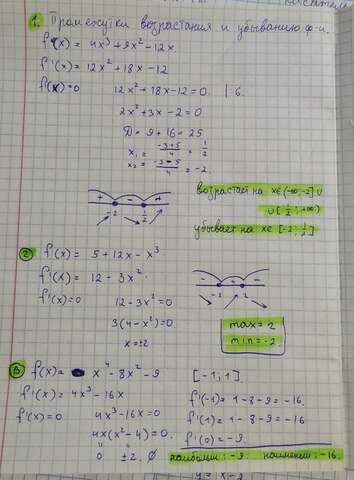 1. Промежутки возрастания и убыванию ф-и.
f(x) = 4x³+9x²-12x
f'(x) = 12x²+18x-12
f'(x)=0 12x²+18x-12=0. | 6
2x²+3x-2=0
D = 9+16=25
x₁ = (-3+5)/4 = 1/2
x₂ = (-3-5)/4 = -2.
+ - +
-2 1/2
возрастает на x∈(-∞;-2] U
U[1/2; +∞)
убывает на x∈ [-2; 1/2]
2) f(x) = 5+12x-x³
f'(x) = 12-3x²
f'(x)=0 12-3x²=0
3(4-x²)=0
x=±2
- + -
-2 2
max=2
min=-2
3) f(x) = x⁴-8x²-9 [-1;1]
f'(x) = 4x³-16x
f'(x)=0 4x³-16x=0
4x(x²-4)=0.
0 ±2. ∅
f'(-1)= 1-8-9=-16.
f'(1)= 1-8-9=-16
f'(0)=-9.
наибольш: -9. наименьш: -16.
y = x-2